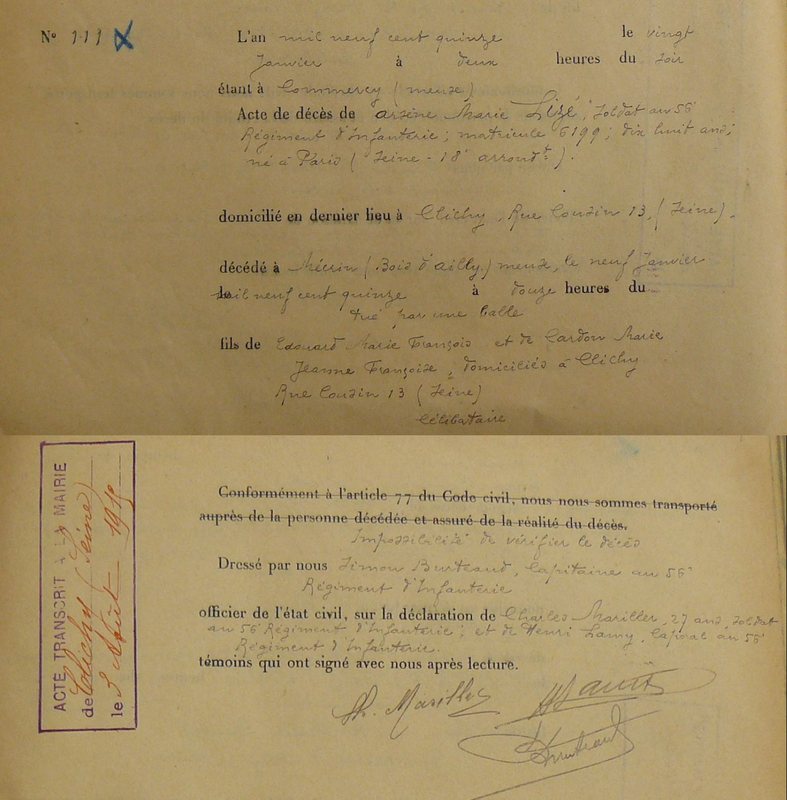 N° 119 X L'an mil neuf cent quinze le vingt
Janvier à deux heures du soir
étant à Commercy (meuse)
Acte de décès de arsène Marie Lizé, soldat au 56e
Régiment d'Infanterie; matricule 6199; dix huit ans;
né à Paris (Seine - 18e arrondt.).
domicilié en dernier lieu à Clichy, Rue Cousin 13, (Seine).
décédé à Mécrin (Bois d'ailly) meuse, le neuf Janvier
le mil neuf cent quinze à douze heures du
tué par une balle
fils de Edouard Marie François et de Cardon Marie
Jeanne Françoise, domiciliés à Clichy
Rue Cousin 13 (Seine)
Célibataire
Conformément à l'article 77 du Code civil, nous nous sommes transporté
auprès de la personne décédée et assuré de la réalité du décès.
Impossibilité de vérifier le décès
Dressé par nous Simon Burteaud, Capitaine au 56e
Régiment d'Infanterie
officier de l'état civil, sur la déclaration de Charles Mariller, 27 ans, soldat
au 56e Régiment d'Infanterie; et de Henri Lamy, Caporal au 56e
Régiment d'Infanterie.
témoins qui ont signé avec nous après lecture.
Ch. Mariller
ACTE TRANSCRIT A LA MAIRIE
de Clichy (Seine)
le 5 Août 1915